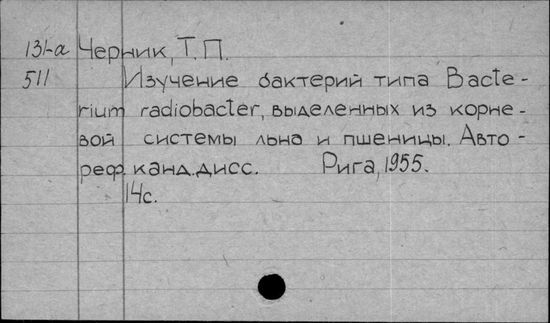 131-а Черник, Т.П.
511 Изучение бактерий типа Bacte-
rium radiobacter, выделенных из корне-
вой системы льна и пшеницы. Авто-
реф. канд. дисс. Рига, 1955.
14с.